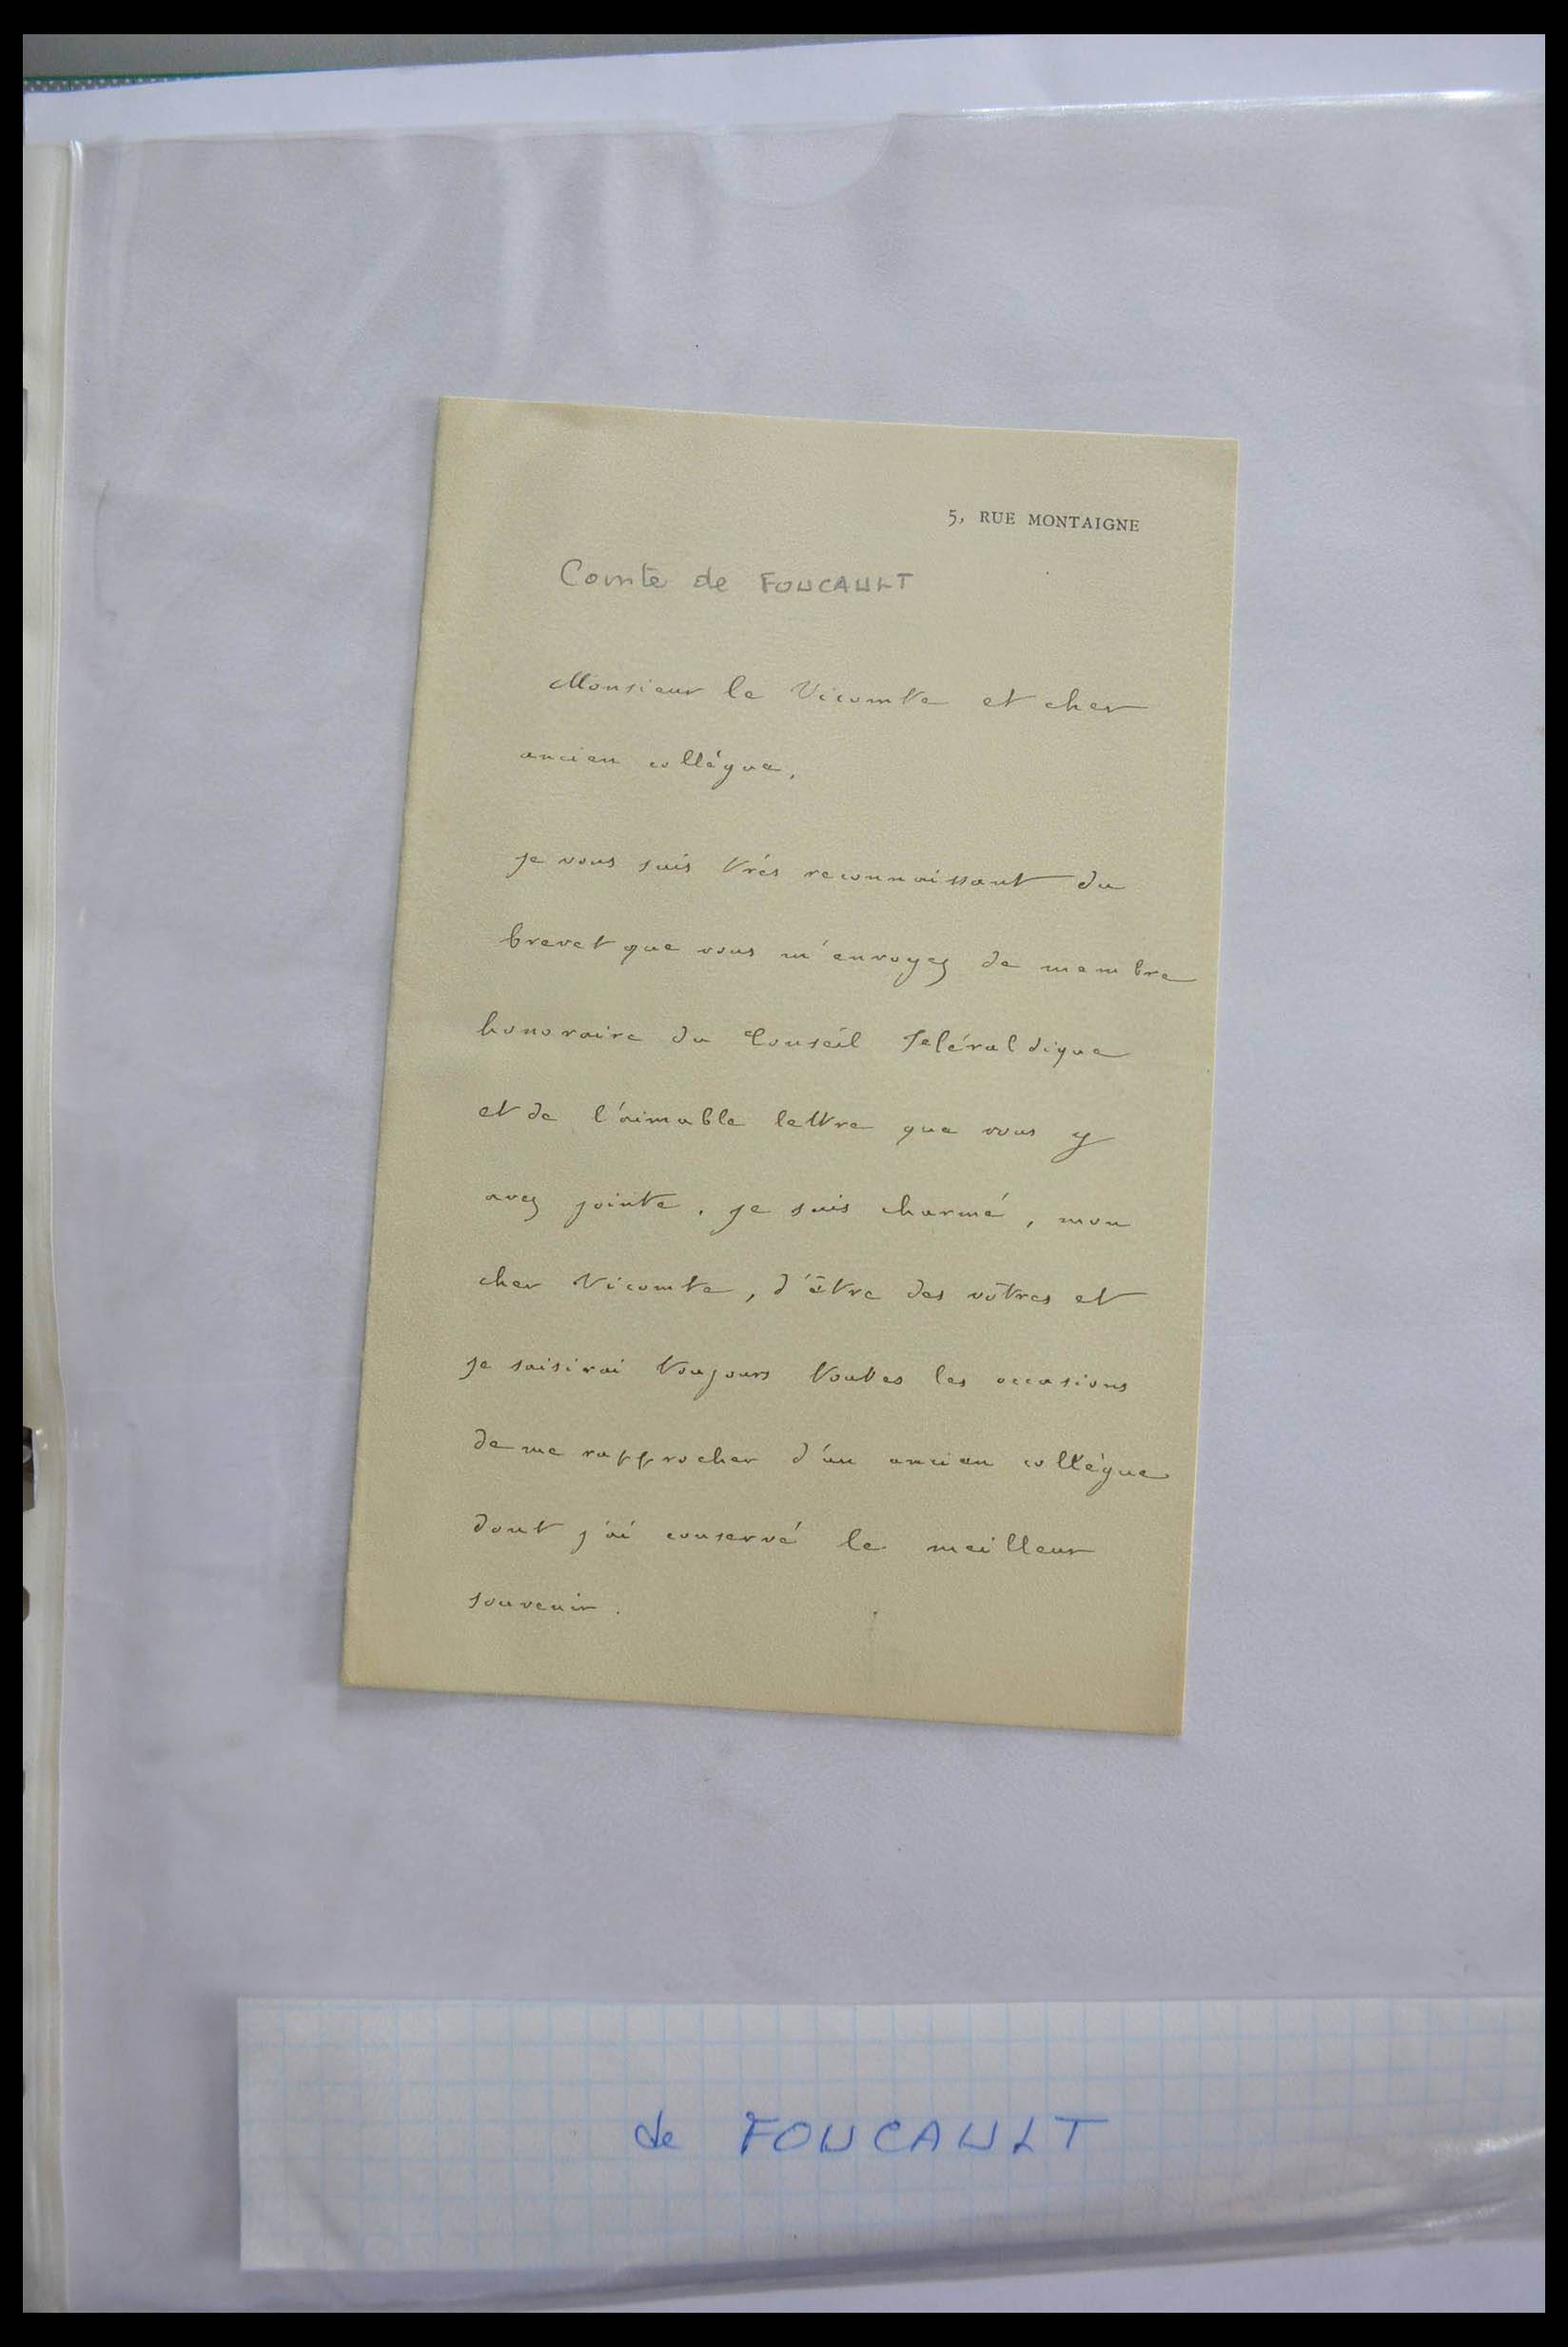 5, RUE MONTAIGNE
Comte de FOUCAULT
Monsieur le Vicomte et cher
ancien collègue,
je vous suis très reconnaissant du
brevet que vous m'envoyez de membre
honoraire du Conseil
et de l'aimable lettre que vous y
avez jointe. je suis charmé, mon
cher Vicomte, d'être des vôtres et
je saisirai toujours toutes les occasions
de me rapprocher d'un ancien collègue
dont j'ai conservé le meilleur
souvenir.
de FOUCAULT